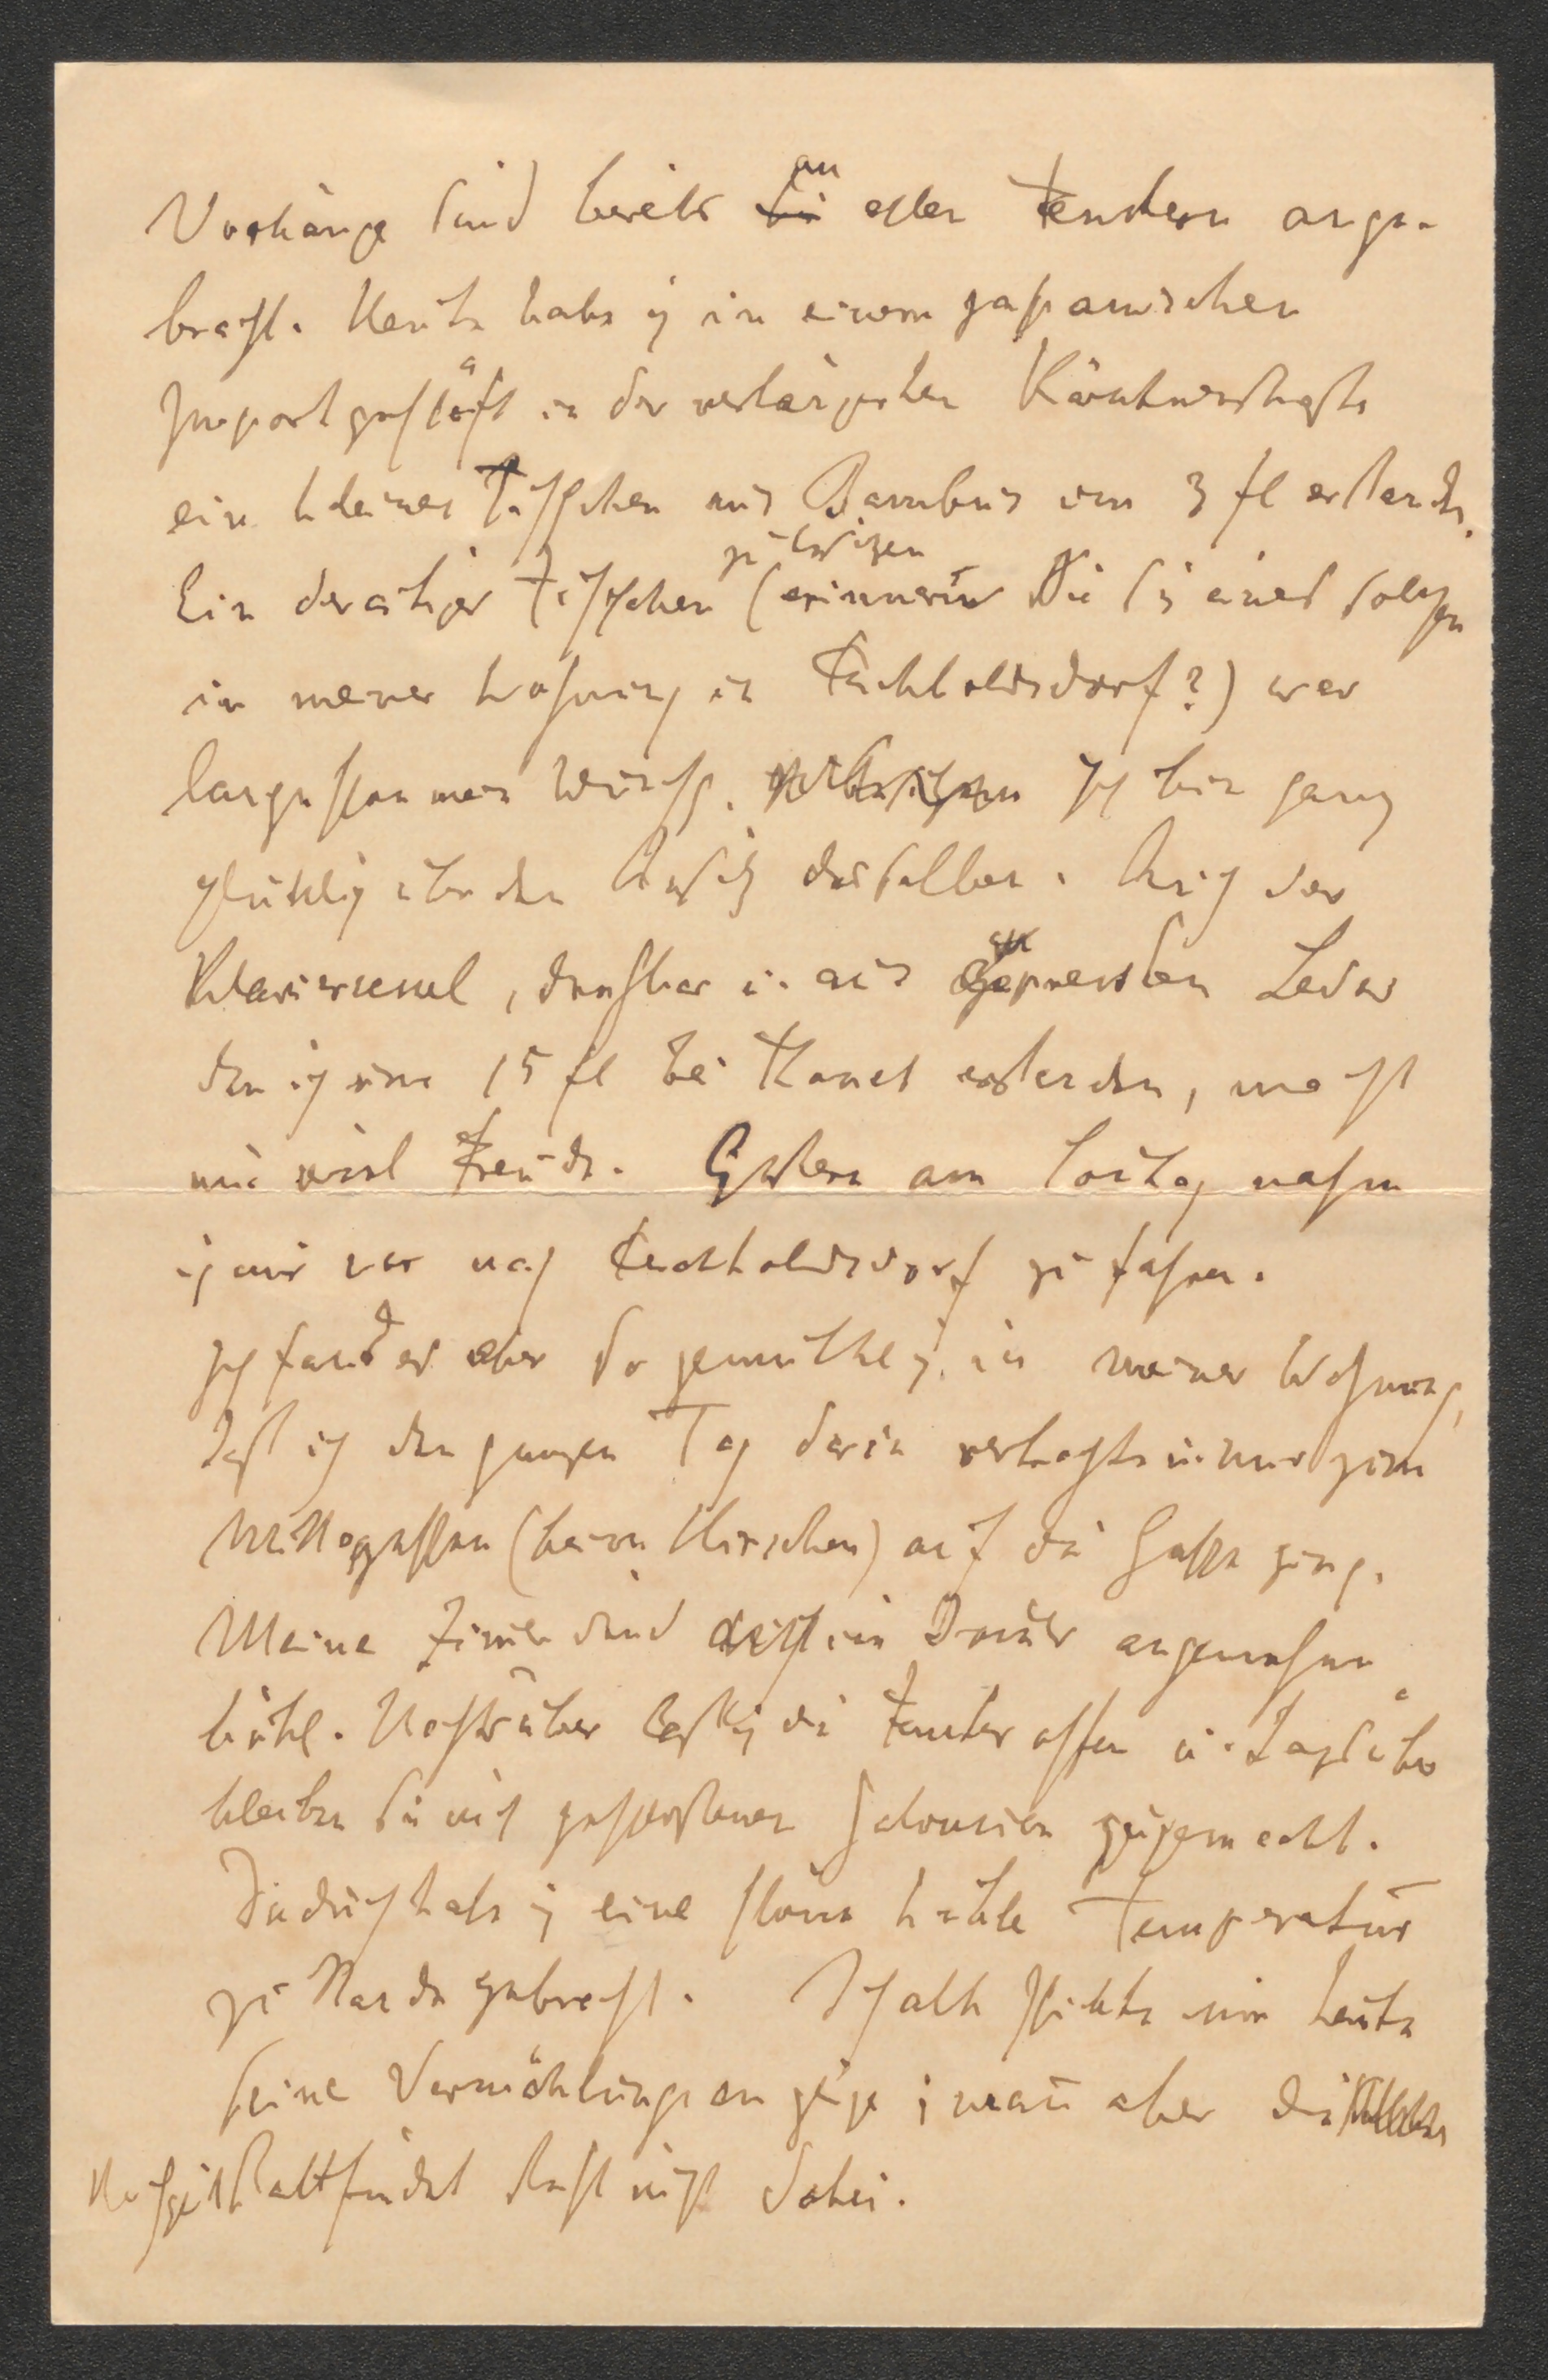 Vorhänge sind bereits an allen Fenstern ange-
bracht. Heute habe ich in einem japanischen
Importgeschäft in der verlängerten Kärntnerstraße
ein kleines Tischchen aus Bambus um 3 fl erstanden.
Ein derartiges Tischchen zu besitzen (erinnern Sie sich eines solchen
in meiner Wohnung in Perchtoldsdorf?) war
langst schon mein Wunsch. Ich bin ganz
glücklich über den Besitz desselben. Auch der
Klaviersessel, drehbar u. aus gepressten Leder
den ich um 15 fl bei Thonet erstanden, macht
mir viel Freude. Gestern am Lostag nahm
ich mir vor nach Perchtoldsdorf zu fahren.
Ich fand es aber so gemüthlich in meiner Wohnung,
daß ich den ganzen Tag darin verbrachte u. nur zum
Mittagessen (beim Hirschen) auf die Gasse ging.
Meine Zimmer sind angenehm
kühl. Nachtsüber laß ich die Fenster offen u. Tagsüber
bleiben sie mit geschlossenen Jalousien zugemacht.
Dadurch habe ich eine schöne kühle Temperatur
zu Stande gebracht. Schalk schickte mir heute
seine Vermählungsanzeige; wann aber die
Hochzeit stattfindet steht nicht dabei.